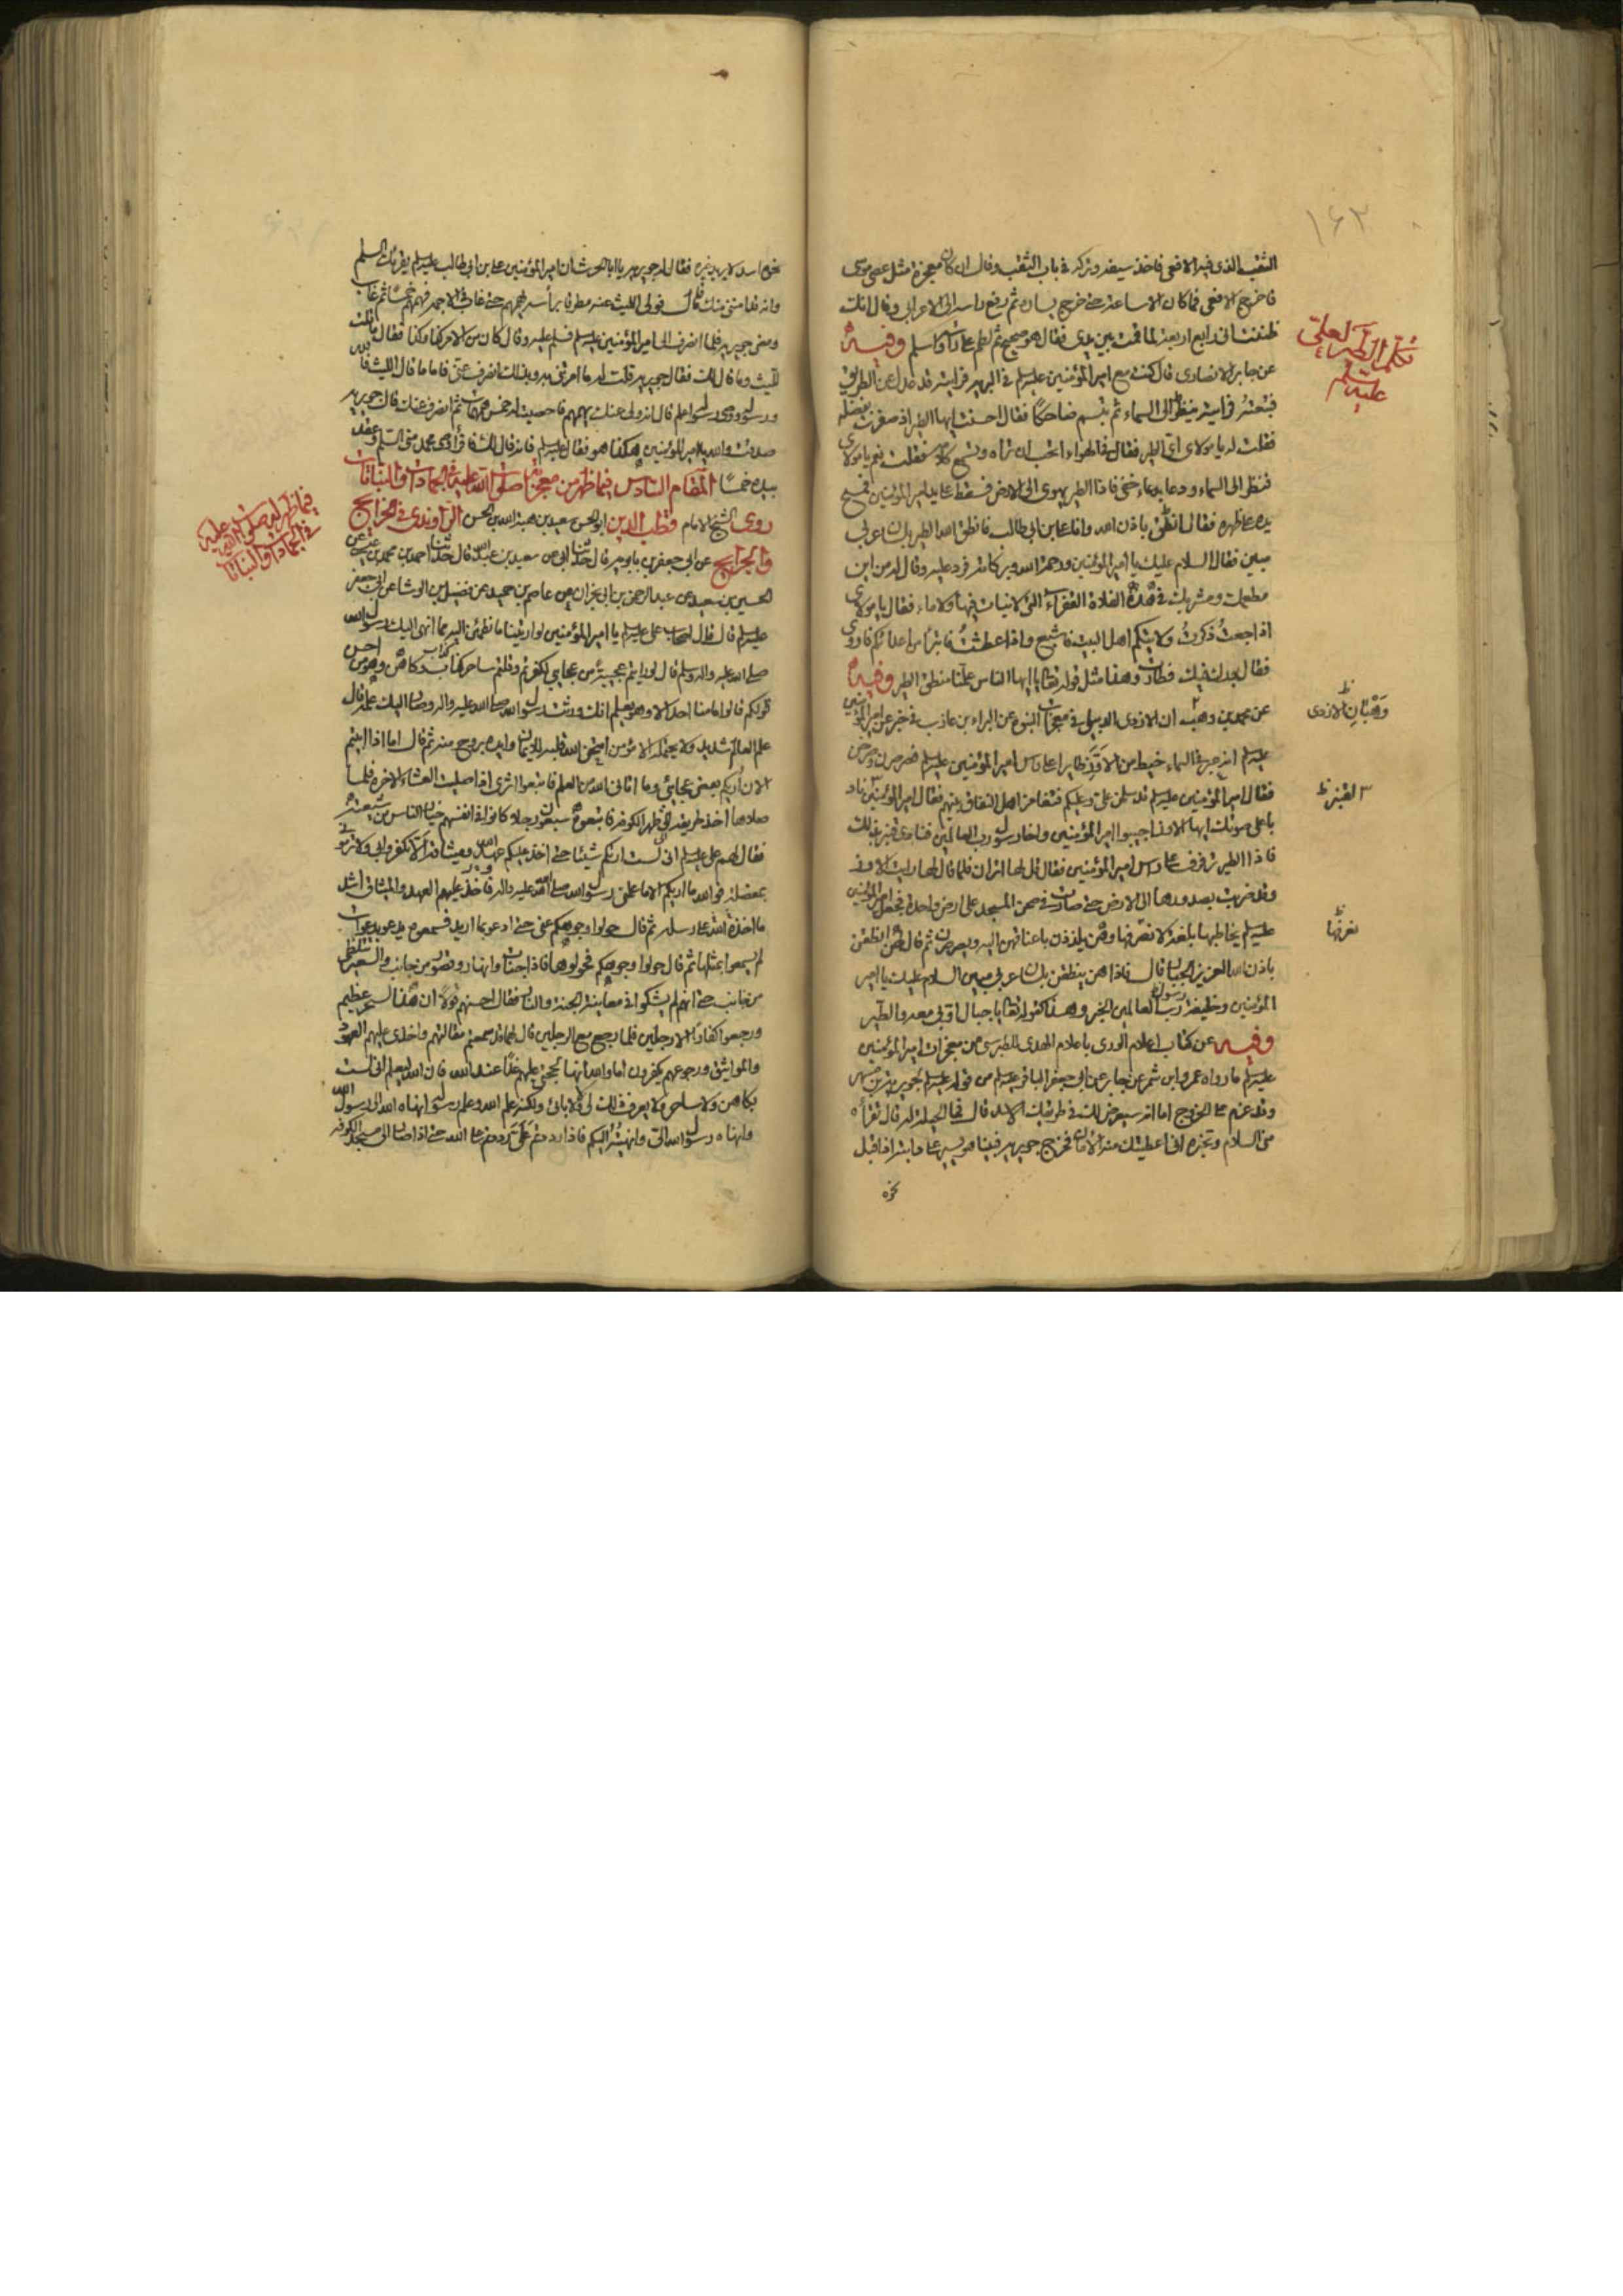 ١٦٢
الثقب الذى فيه الافعى فاخذ سيفه وتركه فى باب الثقب وقال ان كان معجزة مثل عصى موسى
فاخرج الافعى فما كان الا ساعة حتى خرج يساره ثم رفع راسه الى الاعرابى وقال انك
ظننت انى رابع اربعة لما قمت بين يدى فقال هو صحيح ثم لطم على راسه واسلم وفيه
تكلم الطير لعلى
عليه السلام
عن جابر الانصارى قال كنت مع امير المؤمنين عليه السلم فى البريه فرايته قد عدل عن الطريق
فتبعته فرايته ينظر الى السماء ثم تبسم ضاحكا فقال احسنت ايها الطير اذ صفرت بفضله
فقلت له يا مولاى اى الطير فقال فى الهواء اتحب ان تراه وتسمع كلامه فقلت نعم يا مولاى
فنظر الى السماء ودعا بدعاء خفى فاذا الطير يهوى الى الارض فسقط على يد امير المؤمنين فمسح
يده على ظهره فقال انطق باذن الله وانا على بن ابى طالب فانطق الله الطير بلسان عربى
مبين فقال السلام عليك يا امير المؤمنين ورحمة الله وبركاته فرد عليه وقال له من اين
مطعمك ومشربك فى هذه الفلاة القفراء التى لا نبات فيها ولا ماء فقال يا مولاى
اذا جعت ذكرت ولايتكم اهل البيت فاشبع واذا عطشت فاتبرأ من اعدائكم فاروى
فقال بورك فيك فطار وهذا مثل قوله تعالى يا ايها الناس علمنا منطق الطير وفيه
عن محمد بن وهبان الازدى الدبيلى فى معجزات النبوة عن البراء بن عازب فى خبر عن امير المؤمنين
وهبان الازدى
عليه السلم انه عبر فى السماء خيط من الاوز طايرا على راس امير المؤمنين عليه السلم فصرصرن وصرخن
فقال امير المؤمنين عليه السلم قد سلمن على وعليكم فتغامز اهل النفاق بينهم فقال امير المؤمنين ناد
باعلى صوتك ايها الاوز اجيبوا امير المؤمنين واخا رسول رب العالمين فنادى قنبر بذلك
فاذا الطير ترفرف على راس امير المؤمنين فقال قل لها انزلن فلما قال لها رايت الاوز
وقد ضربت بصدورها الى الارض حتى صارت فى صحن المسجد على ارض واحدة فجعل امير المؤمنين
عليه السلم يخاطبها بلغة لا نعرفها وهن يلززن باعناقهن اليه ويصرصرن ثم قال لهن انطقن
نعرفها
باذن الله العزيز الجبار قال فاذا هن ينطقن بلسان عربى مبين السلام عليك يا امير
المؤمنين وخليفة رسول رب العالمين الخبر وهذا كقوله تعالى يا جبال اوبى معه والطير
وفيه عن كتاب اعلام الورى باعلام الهدى للطبرسى من معجزات امير المؤمنين
عليه السلم ما رواه عمرو بن شمر عن جابر عن ابى جعفر الباقر عليه السلم من قوله عليه السلم لجويرية بن مسهر
وقد عزم على الخروج اما انه سيعرض لك فى طريقك الاسد قال فما الحيلة له قال تقراه
منى السلام وتخبره انى اعطيتك منه الامان فخرج جويريه فبينا هو يسير على دابته اذ اقبل
نحوه
نحوه اسد لا يريد غيره فقال له جويريه يا ابا الحارث ان امير المؤمنين على بن ابى طالب عليه السلم يقرئك السلم
وانه قد امننى منك قال فولى الليث عنه مطرقا براسه يهمهم حتى غاب فى الاجمة فهمهم خمسا ثم غاب
ومضى جويريه فلما انصرف الى امير المؤمنين عليه السلم فسلم عليه وقال كان من الامر كذا وكذا فقال ما قلت
لليث وما قال لك فقال جويريه قلت له ما امرتنى به وبذلك انصرف عنى فاما ما قال الليث فالله
ورسوله ووصى رسوله اعلم قال انه ولى عنك يهمهم فاحصيت له خمس همهمات ثم انصرف عنك قال جويريه
صدقت والله يا امير المؤمنين هكذا هو فقال عليه السلم فانه قال لك فاقرأ وصى محمد منى السلم وعقد
بيده خمسا المقام السادس فيما ظهر من معجزاته صلوات الله عليه فى الجمادات والنباتات
فيما ظهر له صلوات الله عليه
فى الجمادات والنباتات
روى الشيخ الامام قطب الدين ابو الحسن سعيد بن هبة الله بن الحسن الراوندى فى الخرايج
والجرايح عن ابى جعفر بن بابويه قال حدثنا ابى عن سعد بن عبد الله قال حدثنا احمد بن محمد بن عيسى عن
الحسين بن سعيد عن عبد الرحمن بن ابى نجران عن عاصم بن حميد عن فضيل بن الوشا عن ابى جعفر
عليه السلم قال قال اصحاب على عليه السلم يا امير المؤمنين لو اريتنا ما نطمئن اليه مما انهى اليك رسول الله
صلى الله عليه واله وسلم قال لو رايتم عجيبة من عجايبى لكفرتم وقلتم ساحر كذاب وكاهن وهو من احسن
قولكم قالوا ما منا احد الا وهو يعلم انك ورثت رسول الله صلى الله عليه واله وصار اليك علمه قال
علم العالم شديد ولا يحتمله الا مؤمن امتحن الله قلبه للايمان وايده بروح منه ثم قال اما اذا ابيتم
الا ان اريكم بعض عجائبى وما اتانى الله من العلم فاتبعوا اثرى اذا صليت العشاء الاخرة فلما
صلاها اخذ طريقه الى ظهر الكوفة فاتبعوه سبعون رجلا كانوا فى انفسهم خيار الناس من شيعته
فقال لهم على عليه السلم انى لست اريكم شيئا حتى اخذ عليكم عهد الله وميثاقه الا تكفروا بى ولا ترمونى
بمعضلة فوالله ما اريكم الا ما علمنى رسول الله صلى الله عليه واله فاخذ عليهم العهد والميثاق اشد
ما اخذه الله على رسله ثم قال حولوا وجوهكم عنى حتى ادعو بما اريد فسمعوه يدعو بدعوات
لم يسمعوا بمثلها ثم قال حولوا وجوهكم فحولوها فاذا جنات وانهار وقصور من جانب والسعير تتلظى
من جانب حتى انهم لم يشكوا فى معاينة الجنة والنار فقال احسنهم قولا ان هذا لسحر عظيم
ورجعوا كفارا الا رجلين فلما رجع مع الرجلين قال لهما قد سمعتم مقالتهم واخذى عليهم العهود
والمواثيق ورجوعهم يكفرون اما والله انها لحجتى عليهم غدا عند الله فان الله ليعلم انى لست
بكاهن ولا ساحر ولا يعرف ذلك لى ولا لابائى ولكنه علم الله وعلم رسوله انهاه الله الى رسوله
وانهاه رسول الله الى وانهيته اليكم فاذا رددتم على رددتم على الله حتى اذا صار الى مسجد الكوفة